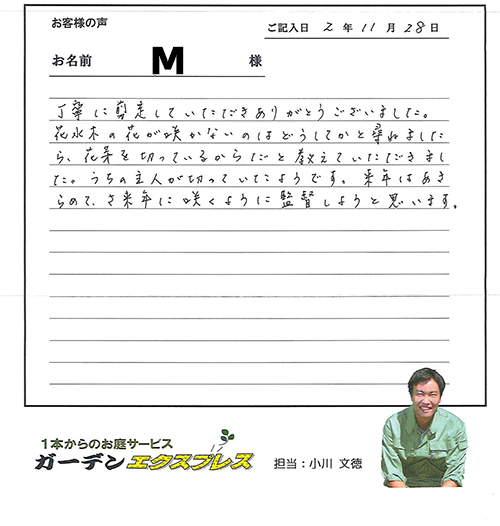 お客様の声
ご記入日 2 年 11 月 28 日
お名前 M 様
丁寧に剪定していただきありがとうございました。
花水木の花が咲かないのはどうしてかと尋ねました
ら、花芽を切っているからだと教えていただきまし
た。うちの主人が切っていたようです。来年はあき
らめて、さ来年に咲くように監督しようと思います。
1本からのお庭サービス
ガーデンエクスプレス
担当：小川 文徳